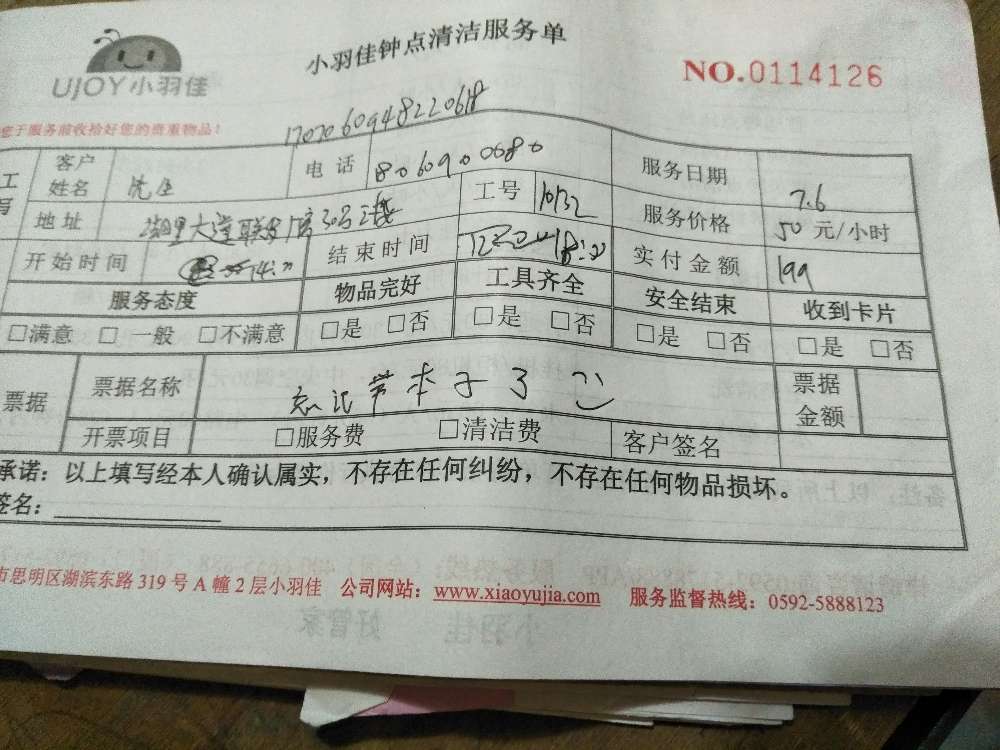 UJOY小羽佳
小羽佳钟点清洁服务单
NO.0114126
您于服务前收拾好您的贵重物品!
1707060948220618
工
写
客户姓名
电话 18060900680
服务日期 7.6
地址 湖里大道联发 30号2楼
工号 10132
服务价格 50 元/小时
开始时间 14:00
结束时间 18:00
实付金额 199
服务态度 物品完好 工具齐全 安全结束 收到卡片
□满意 □ 一般 □不满意 □是 □否 □是 □否 □是 □否 □是 □否
票据 票据名称 忘记带本子了 票据金额
开票项目 □服务费 □清洁费 客户签名
承诺：以上填写经本人确认属实，不存在任何纠纷，不存在任何物品损坏。
签名：
市思明区湖滨东路 319 号 A 幢 2 层小羽佳 公司网站：www.xiaoyujia.com 服务监督热线：0592-5888123